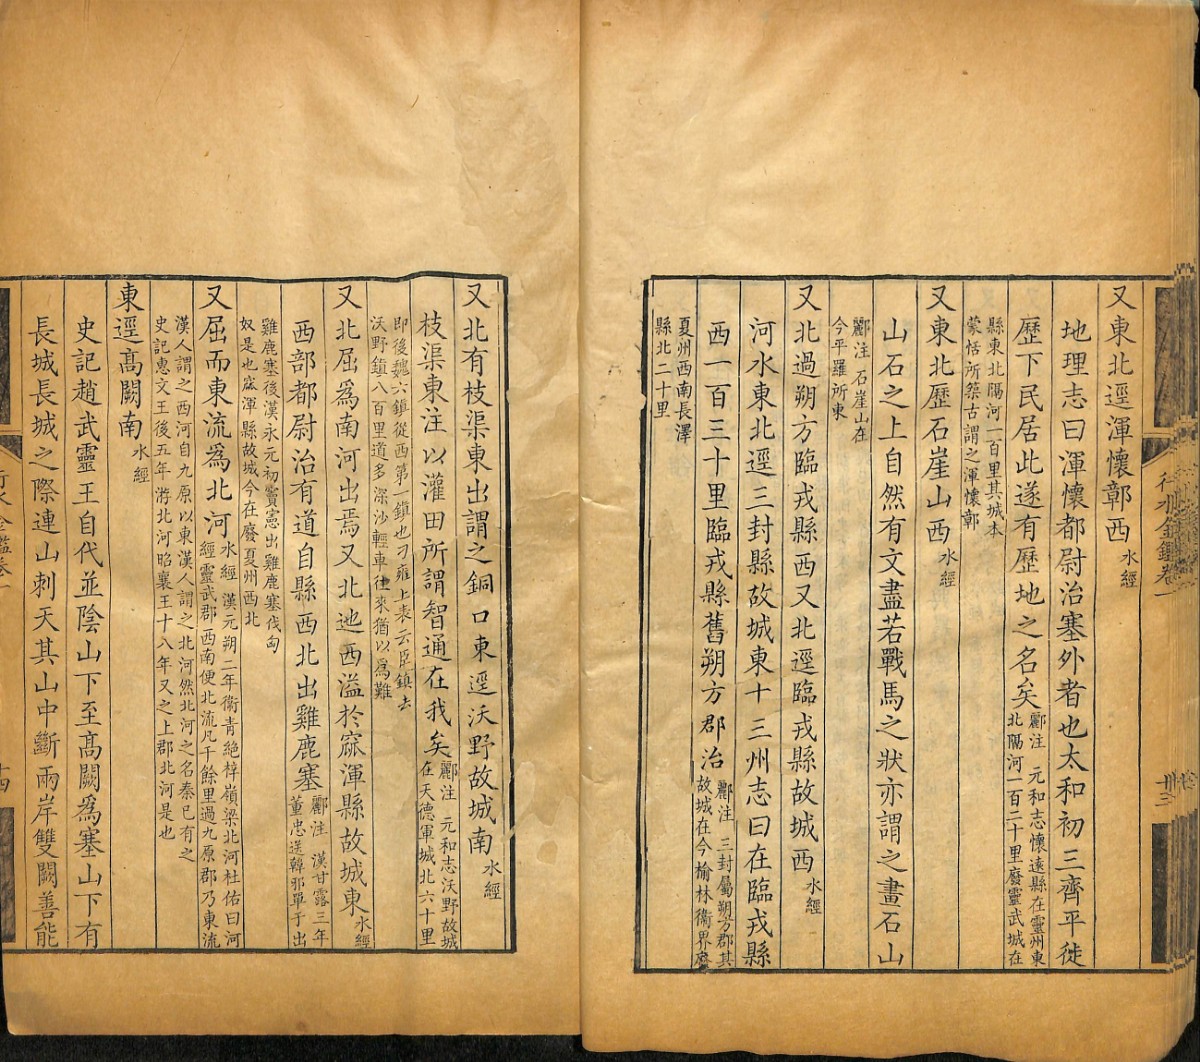 又東北逕渾懷鄣西水經
地理志曰渾懷都尉治塞外者也太和初三齊平徙
歷下民居此遂有歷地之名矣酈注 元和志懷遠縣在靈州東
北隔河一百二十里廢靈武城在
縣東北隔河一百里其城本
蒙恬所築古謂之渾懷鄣
又東北歷石崖山西水經
山石之上自然有文盡若戰馬之狀亦謂之畫石山
酈注 石崖山在
今平羅所東
又北過朔方臨戎縣西又北逕臨戎縣故城西水經
河水東北逕三封縣故城東十三州志曰在臨戎縣
西一百三十里臨戎縣舊朔方郡治酈注 三封屬朔方郡其
故城在今榆林衞界廢
夏州西南長澤
縣北二十里
又北有枝渠東出謂之銅口東逕沃野故城南水經
枝渠東注以灌田所謂智通在我矣酈注 元和志沃野故城
在天德軍城北六十里
即後魏六鎮從西第一鎮也刁雍上表云臣鎮去
沃野鎮八百里道多深沙輕車往來猶以爲難
又北屈爲南河出焉又北迆西溢於窳渾縣故城東水經
西部都尉治有道自縣西北出雞鹿塞酈注 漢甘露三年
董忠送韓邪單于出
雞鹿塞後漢永元初竇憲出雞鹿塞伐匈
奴是也窳渾縣故城今在廢夏州西北
又屈而東流爲北河水經 漢元朔二年衞青絶梓嶺梁北河杜佑曰河
經靈武郡西南便北流凡千餘里過九原郡乃東流
漢人謂之西河自九原以東漢人謂之北河然北河之名秦已有之
史記惠文王後五年游北河昭襄王十八年又之上郡北河是也
東逕高闕南水經
史記趙武靈王自代並陰山下至高闕爲塞山下有
長城長城之際連山刺天其山中斷兩岸雙闕善能